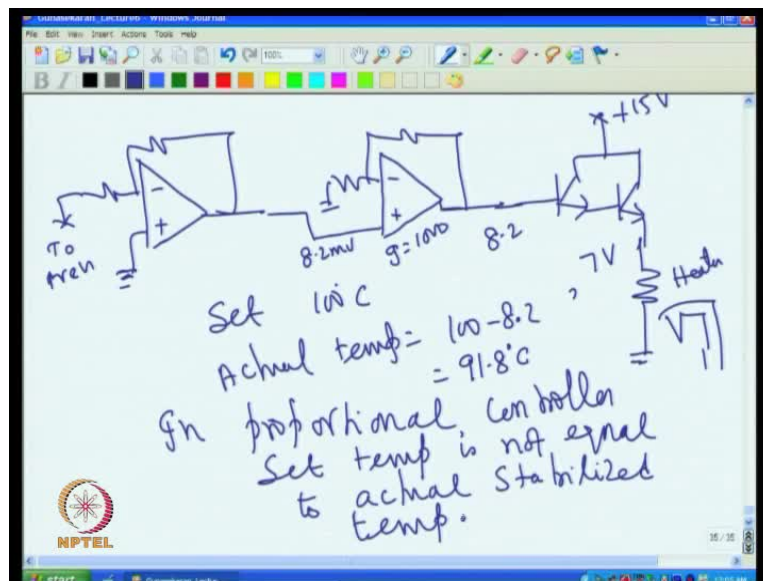 Gunasekaran_Lecture6 - Windows Journal
File Edit View Insert Actions Tools Help
100%
B I
+15V
-
+
-
+
To
8.2mV
g=1000
8.2
7V
Heater
Set 100°C
Actual temp = 100-8.2
= 91.8°C
In proportional controller
Set temp is not equal
to actual stabilized
temp.
NPTEL
35/35
start